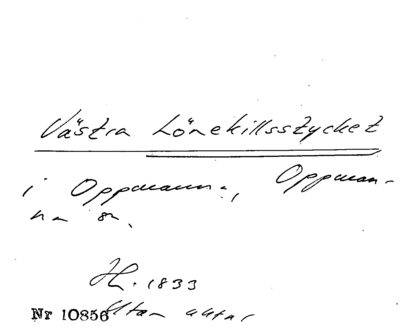 Västra Lönekillsstycket
i Oppmanna, Oppman-
na sn.
H. 1833
Nr 10856 Utan aktnr